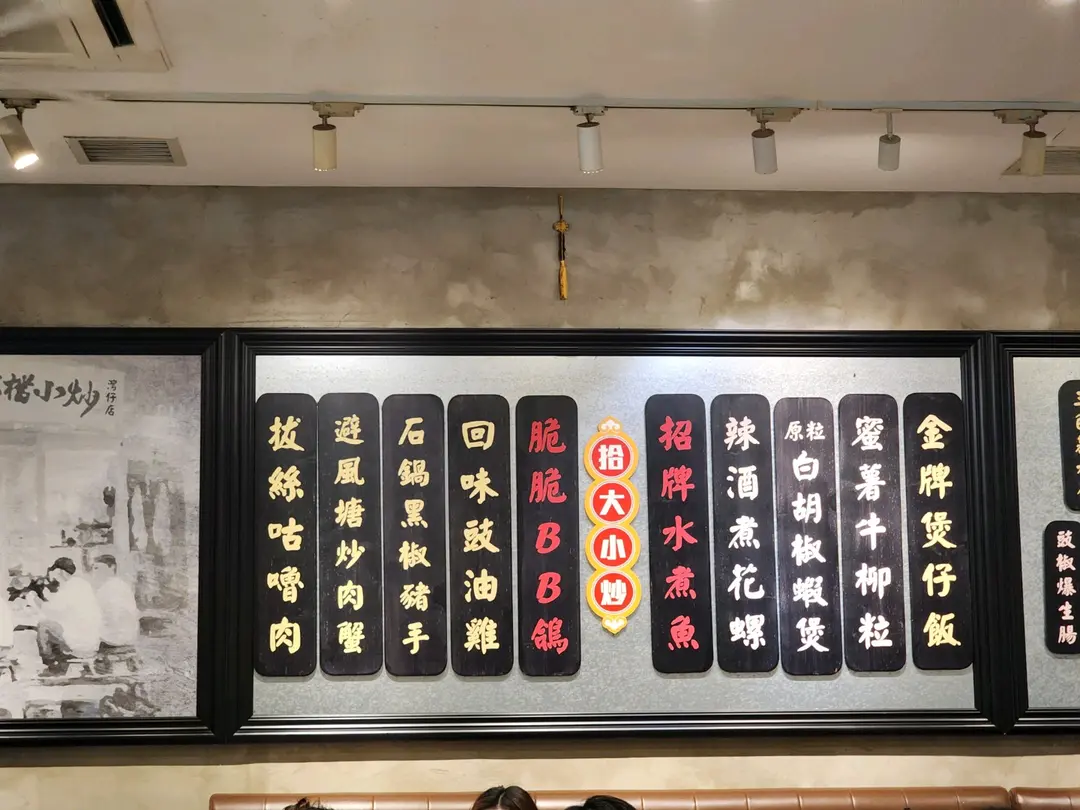 小炒
灣仔店
拔絲咕嚕肉
避風塘炒肉蟹
石鍋黑椒豬手
回味豉油雞
脆脆BB鴿
拾大小炒
招牌水煮魚
辣酒煮花螺
原粒白胡椒蝦煲
蜜薯牛柳粒
金牌煲仔飯
豉椒爆生腸